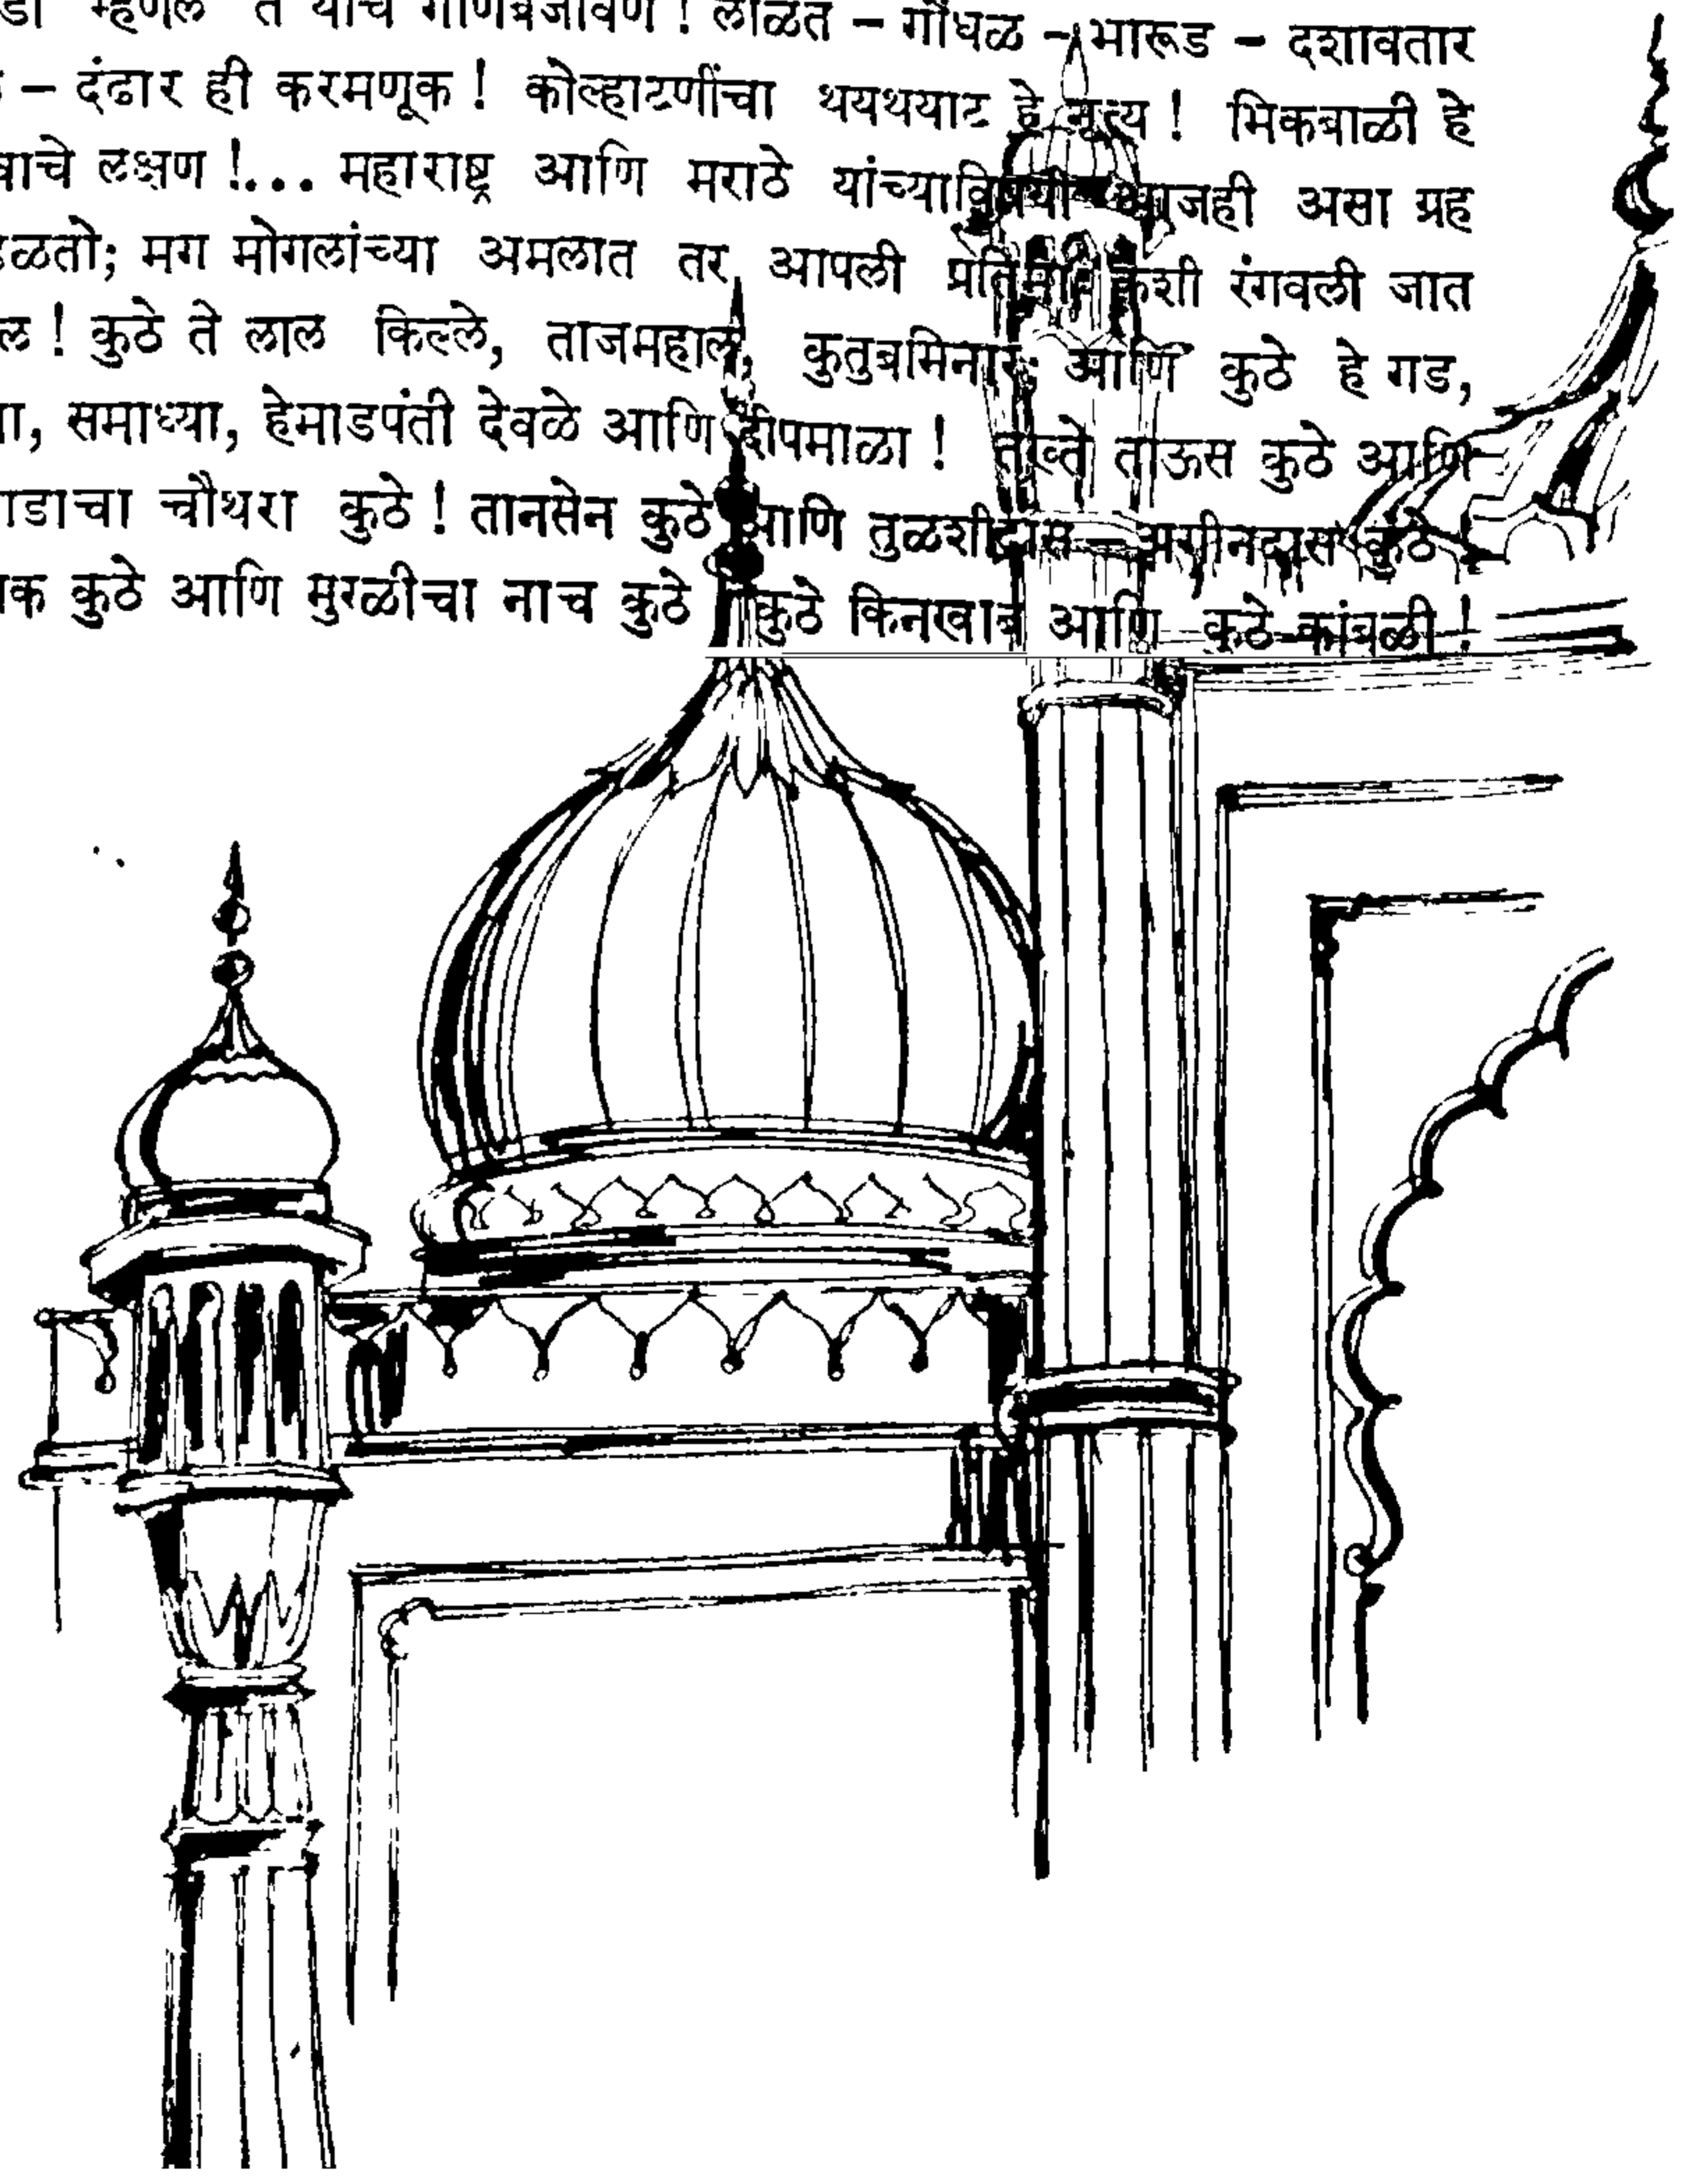 म्हणल ते यांचे गाणेबजावणे ! लळित – गोंधळ – भारूड – दशावतार
– दंढार ही करमणूक ! कोल्हाटणींचा थयथयाट हे नृत्य ! भिकबाळी हे
लक्षण !... महाराष्ट्र आणि मराठे यांच्याविषयी आजही असा ग्रह
मग मोगलांच्या अमलात तर आपली प्रतिमा कशी रंगवली जात
! कुठे ते लाल किल्ले, ताजमहाल, कुतुबमिनार; आणि कुठे हे गड,
समाध्या, हेमाडपंती देवळे आणि दीपमाळा ! तख्ते ताऊस कुठे आणि
चौथरा कुठे ! तानसेन कुठे आणि तुळशीदास – कुठे !
कुठे आणि मुरळीचा नाच कुठे ! कुठे किनखाब आणि कुठे कांबळी !